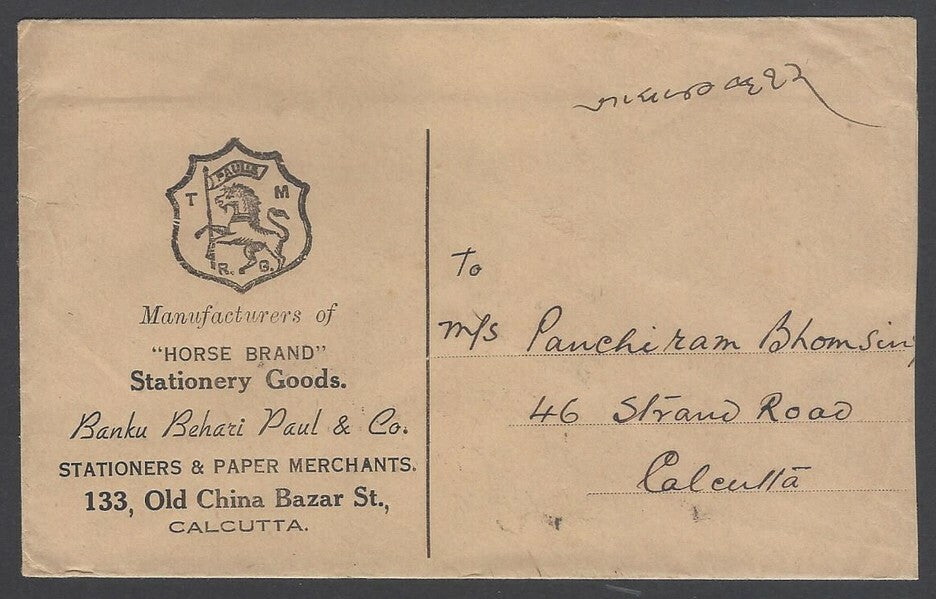 PAUL'S
T M
R. G.
Manufacturers of
"HORSE BRAND"
Stationery Goods.
Banku Behari Paul & Co.
STATIONERS & PAPER MERCHANTS.
133, Old China Bazar St.,
CALCUTTA.
To
M/s Panchiram Bhomsing
46 Strand Road
Calcutta